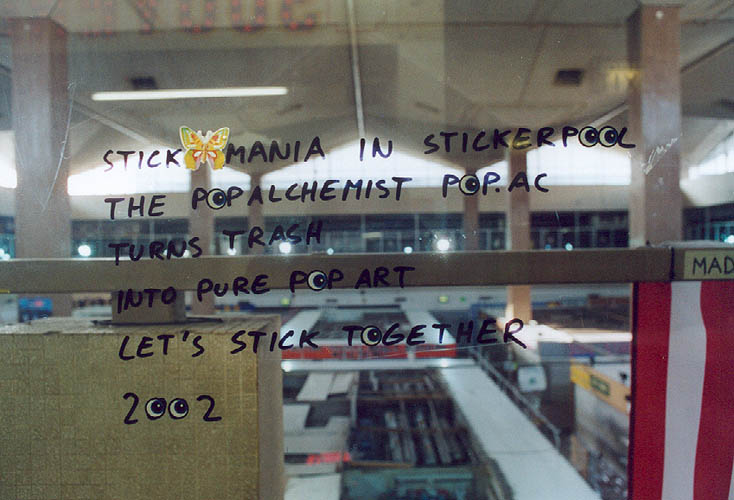 STICK MANIA IN STICKERPOOL
THE POPALCHEMIST POP.AC
TURNS TRASH
INTO PURE POP ART
LET'S STICK TOGETHER
2002
MAD